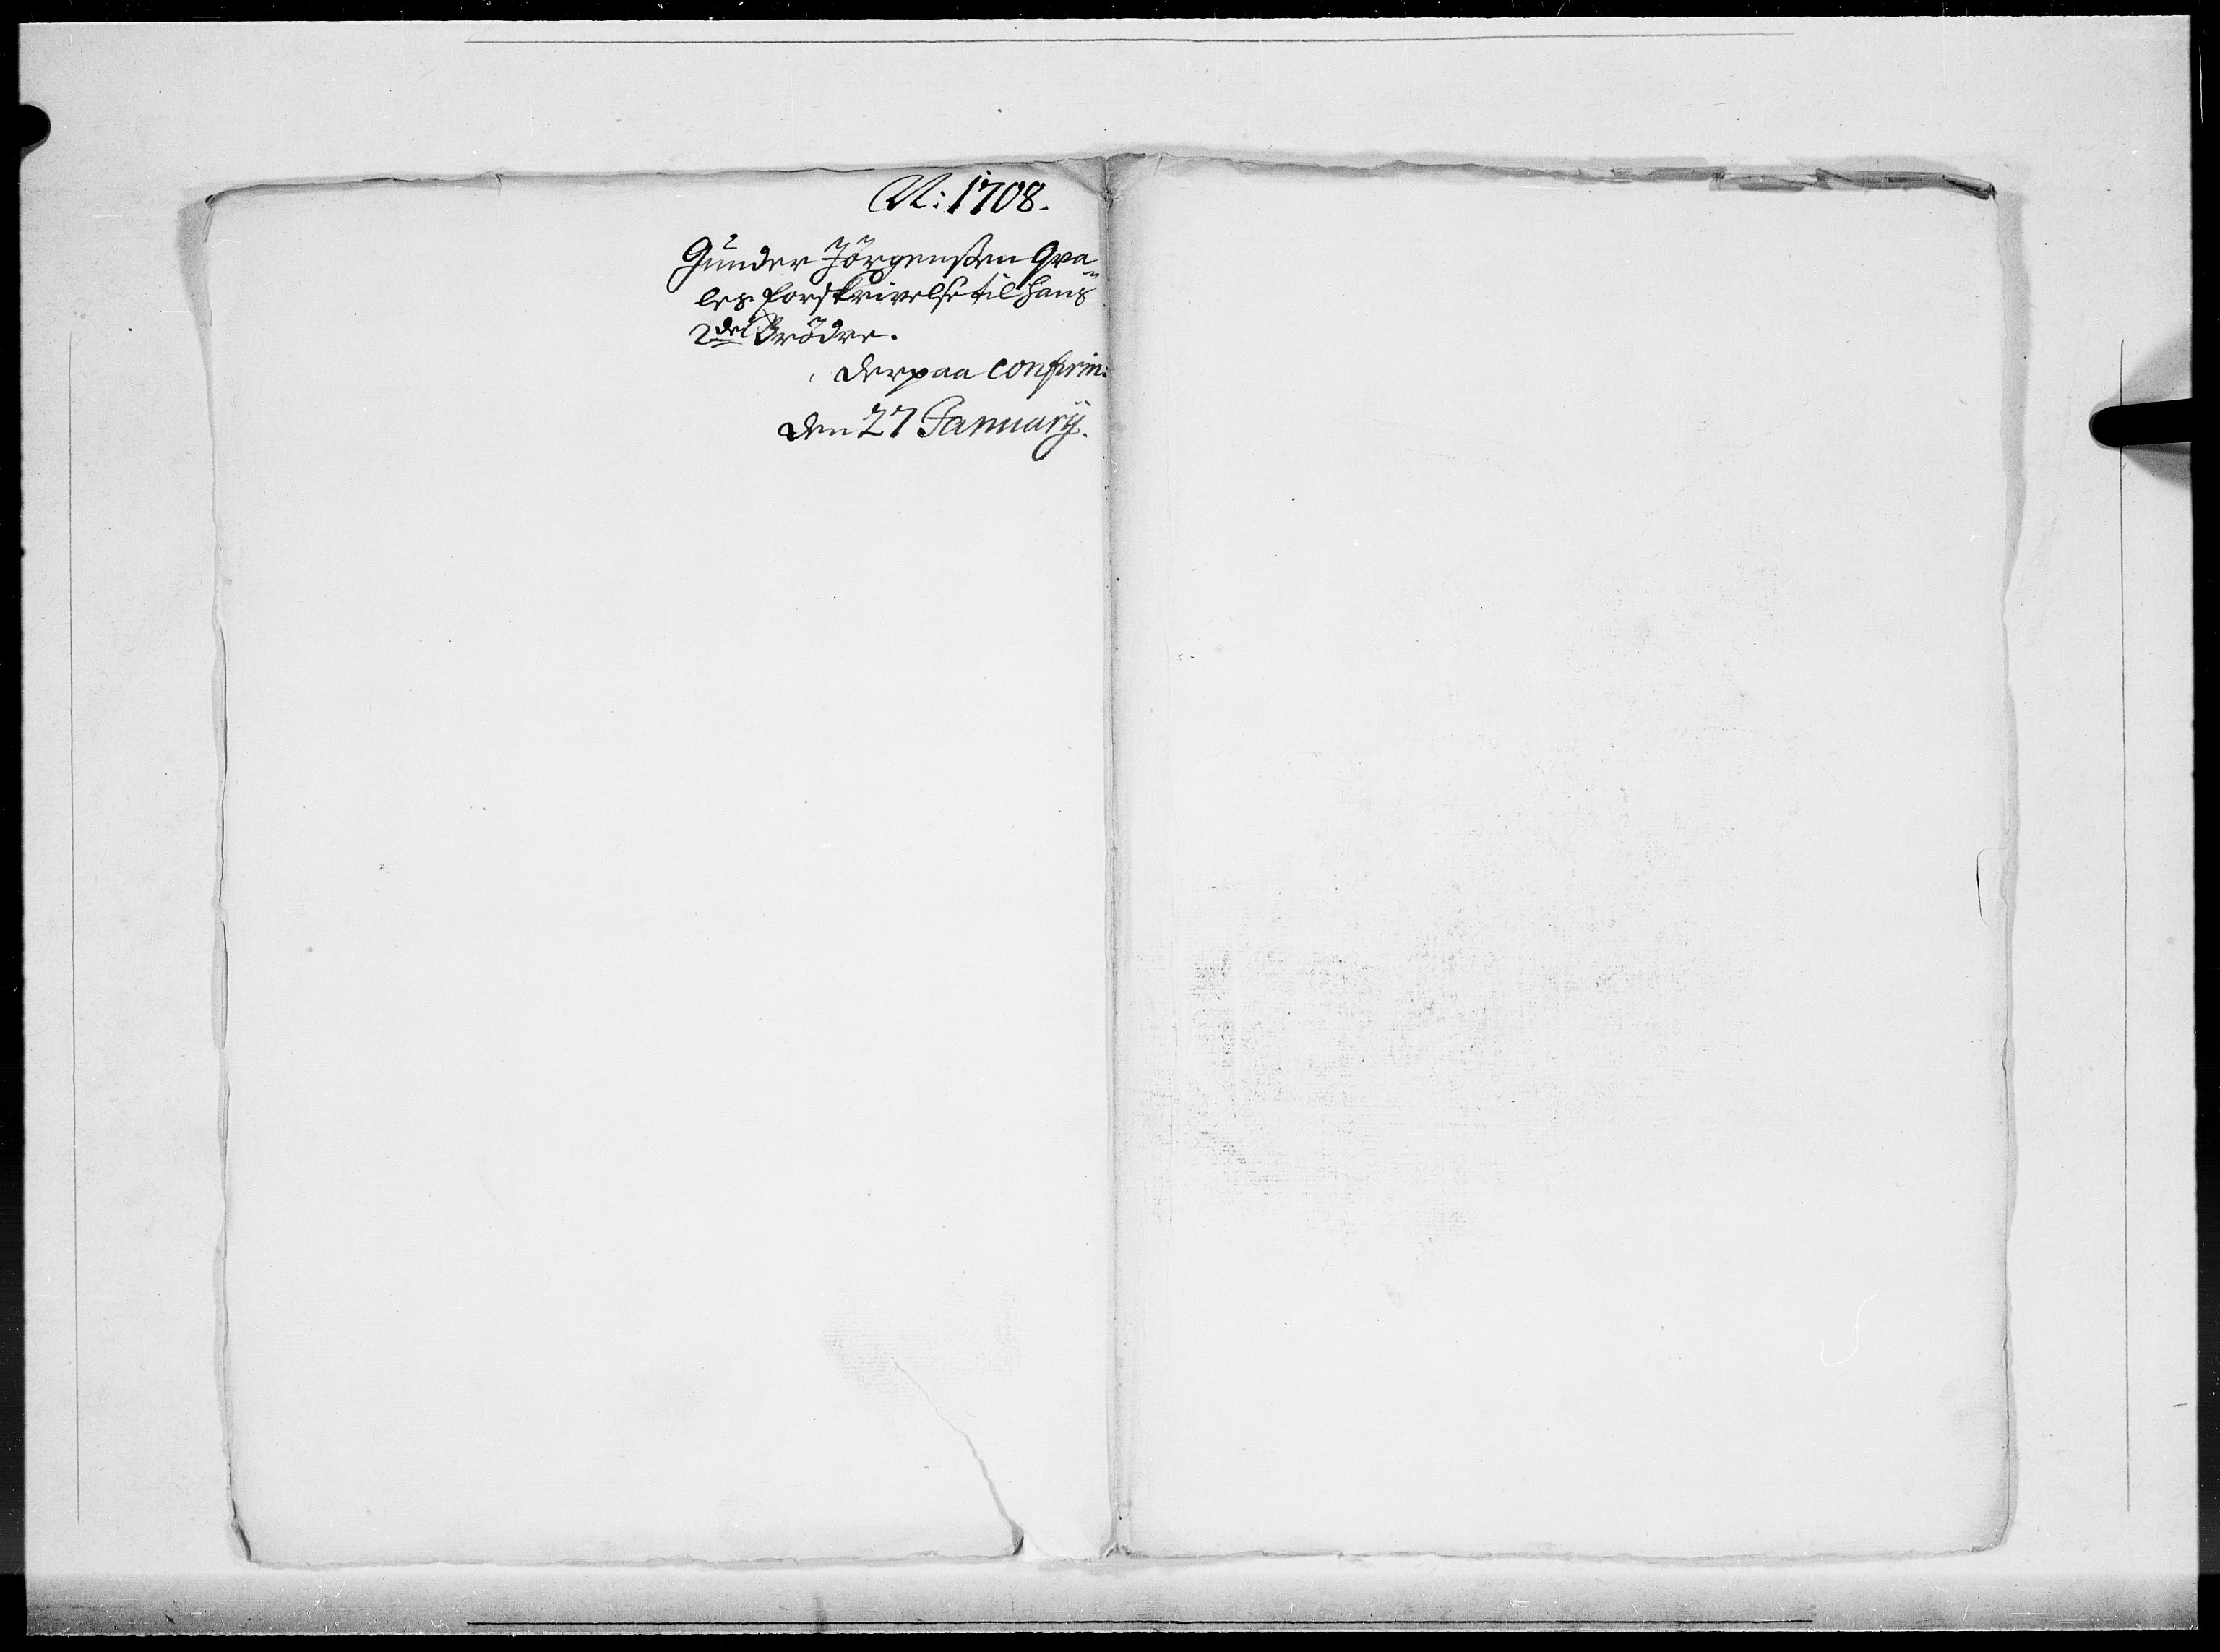 A: 1708.
Gunder Jörgensßen Gra=
les forskrivelse til hans
2de Brödre.
derpaa confirm:
den 27 Januarij.